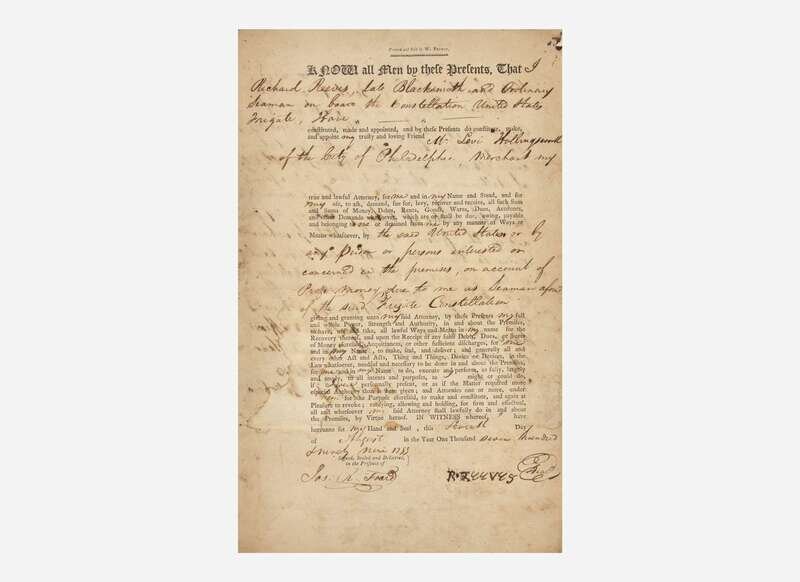 Printed and Sold by W. 
KNOW all Men by theſe Preſents, That I
Richard Reeves, late Blacksmith and Ordinary
Seaman on board the Constellation United States
Frigate, Have
conſtituted, made and appointed, and by theſe Preſents do conſtitute, make,
and appoint my truſty and loving Friend Mr. Levi Hollingsworth
of the City of Philadelphia, Merchant my
true and lawful Attorney, for me and in my Name and Stead, and for
my uſe, to aſk, demand, ſue for, levy, recover and receive, all ſuch Sum
and Sums of Money, Debts, Rents, Goods, Wares, Dues, Accounts,
and other Demands whatſoever, which are or ſhall be due, owing, payable
and belonging to me or detained from me by any manner of Ways or
Means whatſoever, by the said United States or by
any Person or persons interested or
concerned in the premises, on account of
Prize money due to me as Seaman aforesd
of the said Frigate Constellation
giving and granting unto my ſaid Attorney, by theſe Preſents my full
and whole Power, Strength and Authority, in and about the Premiſes,
to have, uſe and take, all lawful Ways and Means in my name for the
Recovery thereof; and upon the Receipt of any ſuch Debts, Dues, or Sums
of Money aforeſaid, Acquittances, or other ſufficient diſcharges, for me
and in my Name, to make, ſeal, and deliver; and generally all and
every other Act and Acts, Thing and Things, Device or Devices, in the
Law whatſoever, needful and neceſſary to be done in and about the Premiſes,
for me and in my Name to do, execute and perform, as fully, largely
and amply, to all intents and purpoſes, as might or could do,
if perſonally preſent, or as if the Matter required more
eſpecial Authority than is herein given; and Attornies one or more, under
for the Purpoſe aforeſaid, to make and conſtitute, and again at
Pleaſure to revoke; ratifying, allowing and holding, for firm and effectual,
all and whatſoever my ſaid Attorney ſhall lawfully do in and about
the Premiſes, by Virtue hereof. IN WITNESS whereof, I have
hereunto ſet my Hand and Seal, this Day
of August in the Year One Thousand seven hundred
& ninety Nine 1799
Signed, Sealed and Delivered,
in the Preſence of
Jos.